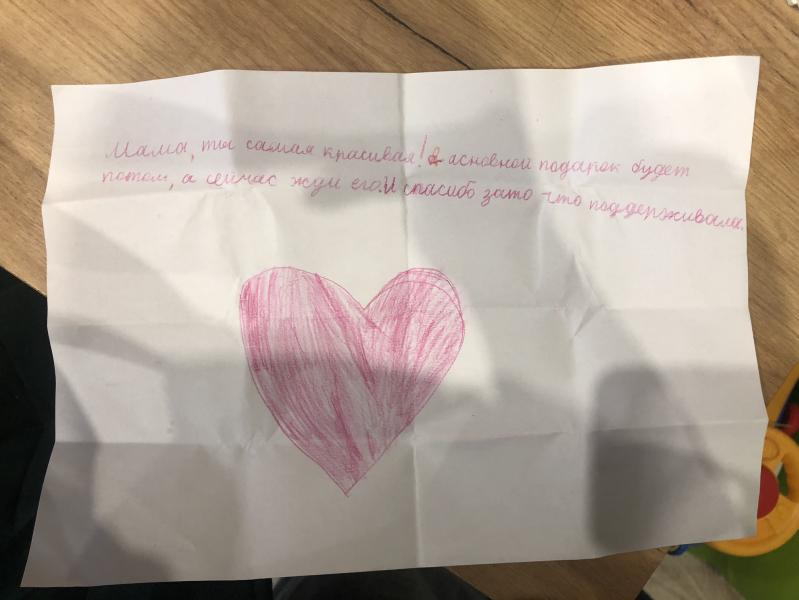 Мама, ты самая красивая! А асновной подарок будет
потом, а сейчас жди его. И спасибо зато что поддерживала.